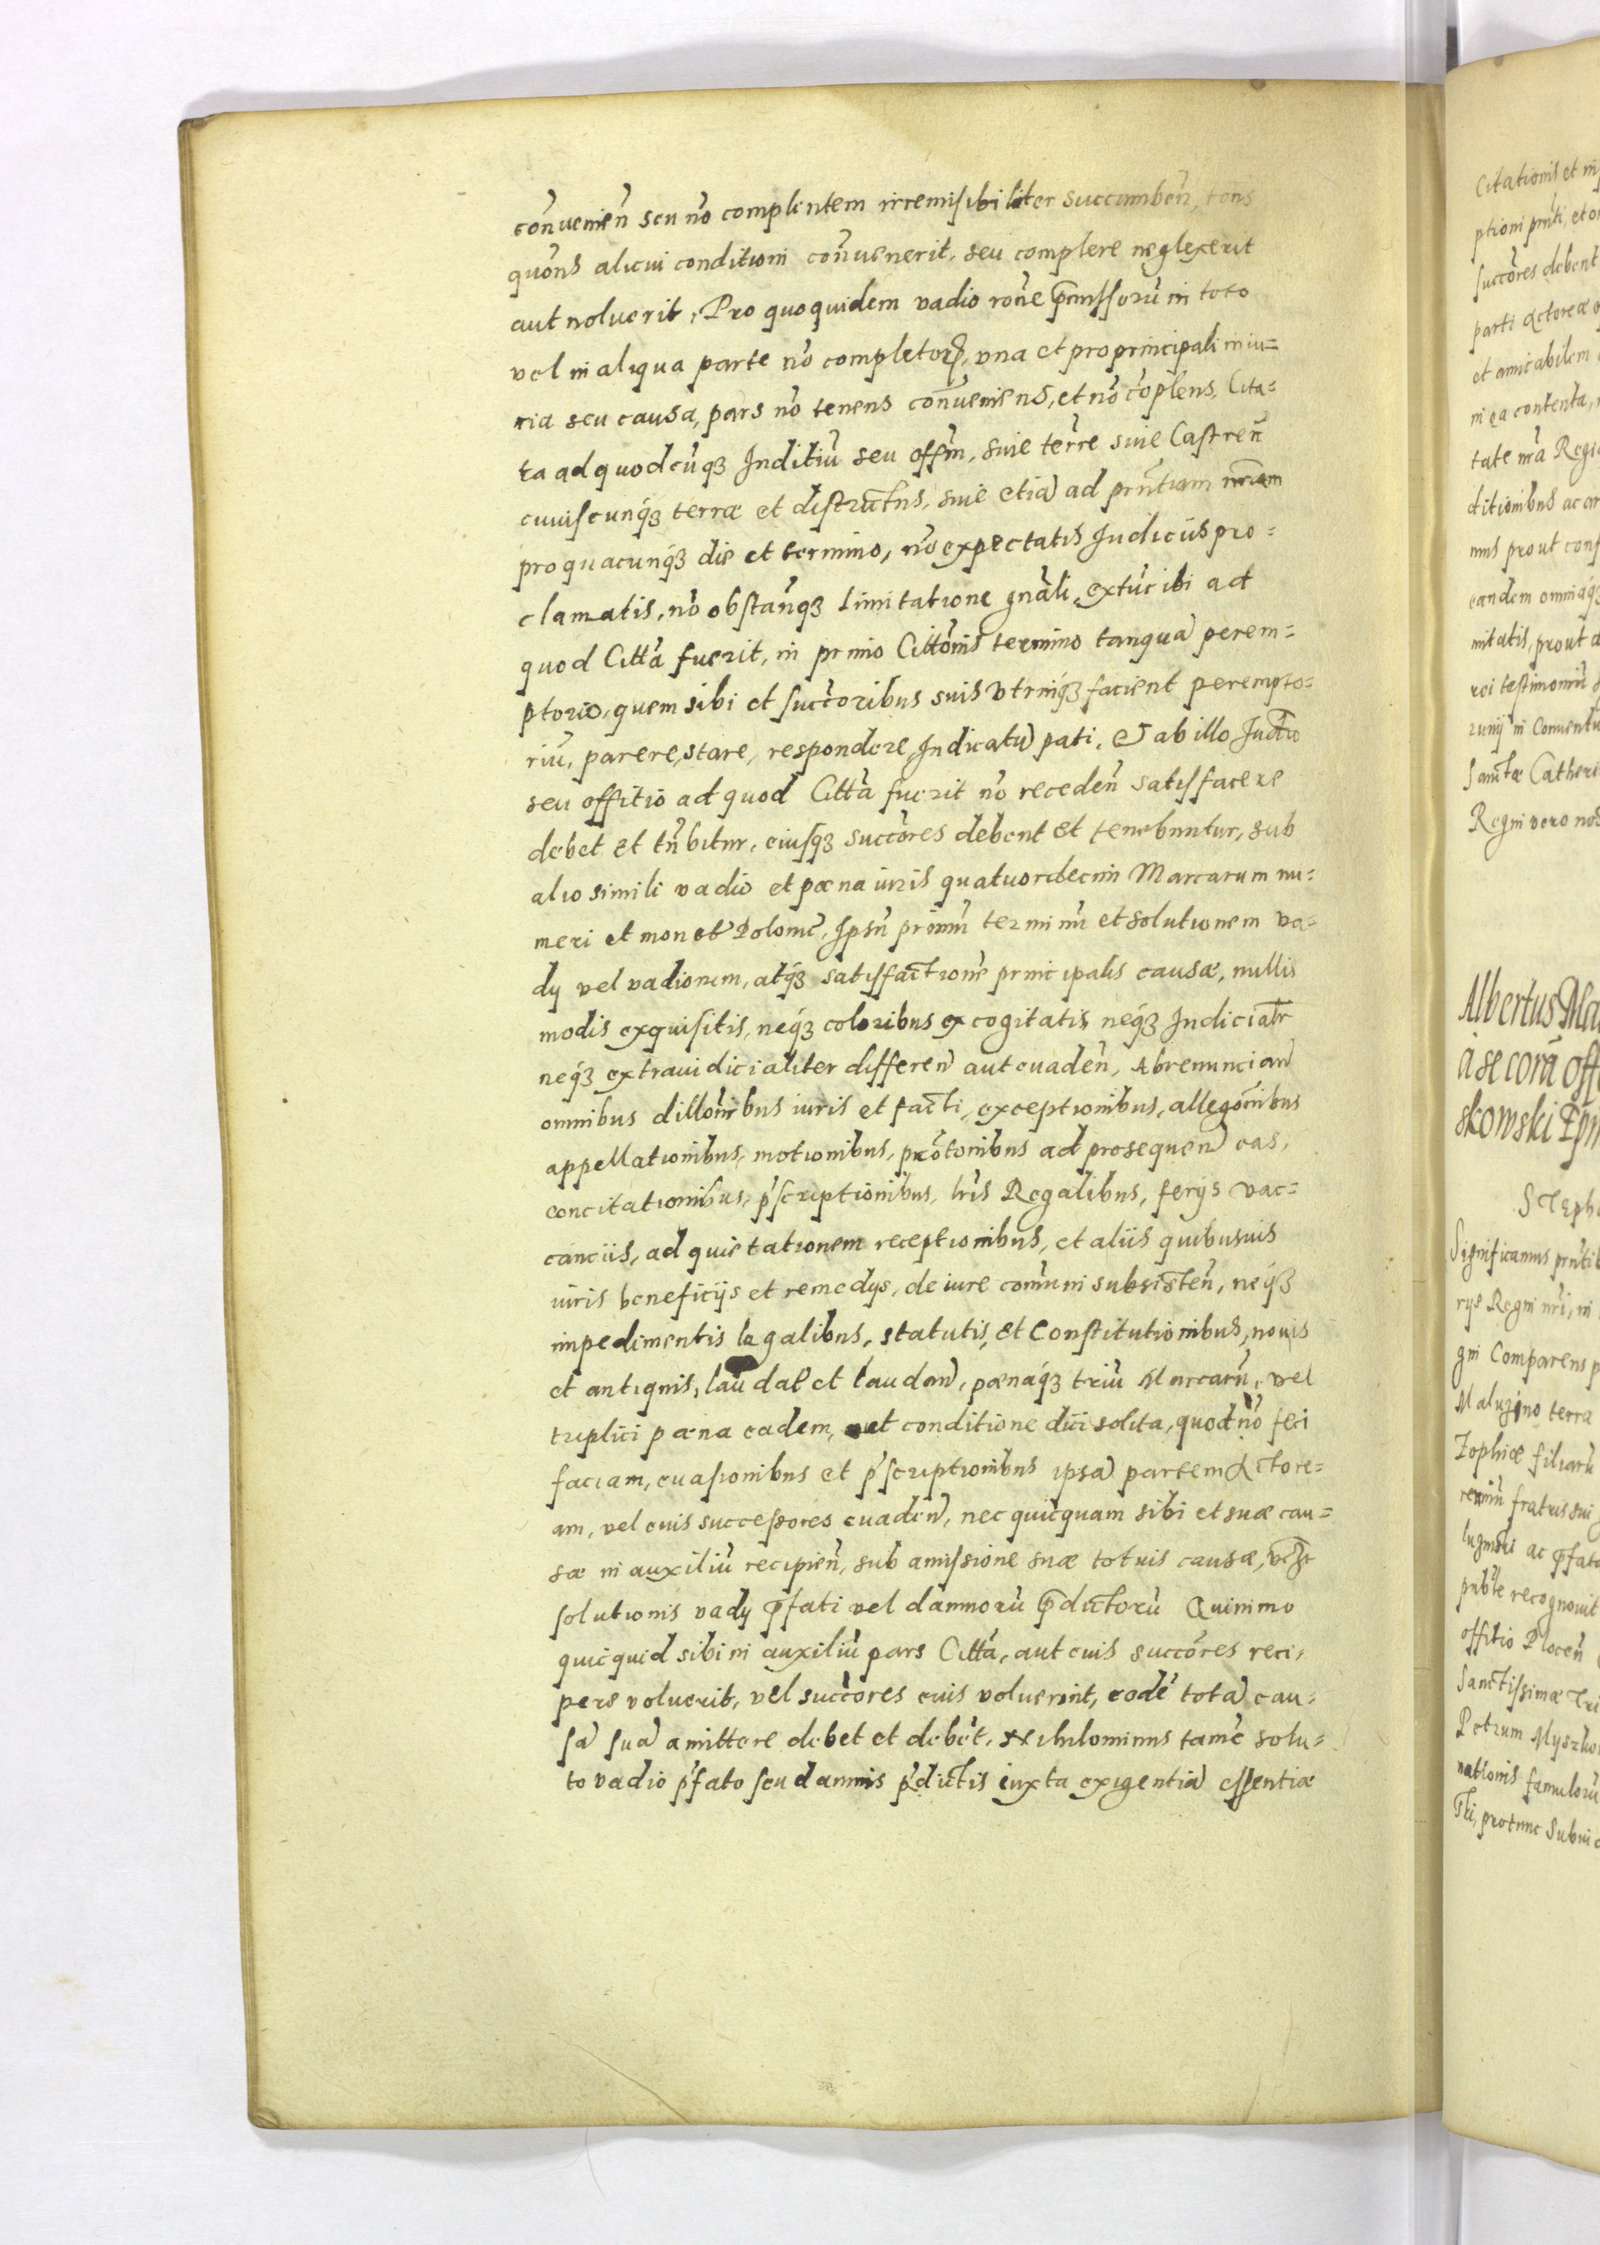 cōnuenieñ seu nō complentem irremisibiliter succumbeñ, tōns
quōns alicui conditioni cōnuenerit, seu complere neglexerit
aut noluerit, Pro quoquidem vadio rōne p̄missorū in toto
vel in aliqua parte nō completorꝝ, vna et pro principali iniu=
ria seu causa, pars nō tenens cōnueniens, et nō cōplens, Cita=
ta ad quodcūqꝫ Iuditiū seu offm̄, siue terrē siue Castreñ
cuiuscunqꝫ terræ et districtus, siue etiā ad pñtiam nrām
pro quacunqꝫ die et termino, nō expectatis Iudicijs pro=
clamatis, nō obstan̄qꝫ limitatione gnāli, extūc ibi ad
quod Cittā fuerit, in primo Cittōnis termino tanquā perem=
ptorio, quem sibi et succōribus suis vtrinqꝫ facient perempto=
riū, parere, stare, respondere, Iudicatū pati, Et ab illo Iudtio
seu offitio ad quod Cittā fuerit nō recedeñ satisfacere
debet et tn̄bitur, eiusqꝫ succōres debent et tenebuntur, sub
alio simili vadio et pœna iuris quatuordecim Marcarum nu=
meri et monetē Poloniē, Ipsū primū terminū et solutionem va=
dij vel vadiorum, atqꝫ satisfactionē principalis causæ, nullis
modis exquisitis, neqꝫ coloribus excogitatis, neqꝫ Iudicialr̄
neqꝫ extraiudicialiter differeñ aut euadeñ, Abrenuncian̄
omnibus dillōnibus iuris et facti, exceptionibus, allegōnibus
appellationibus, motionibus, prōtonibus ad prosequeñ eas,
concitationibus, p̄scriptionibus, lrīs Regalibus, ferijs vac=
cancijs, ad quietationem receptionibus, et alijs quibusuis
iuris beneficijs et remedijs, de iure comūni subsisteñ, neqꝫ
impedimentis legalibus, statutis, et Constitutionibus, nouis
et antiquis, laudat̄ et laudan̄, pœnaqꝫ triū Marcarū, vel
triplici pœna eadem, aut conditione dici solita, quod nō feci
faciam, euasionibus et p̄scriptionibus ipsā partem Actore=
am, vel euis successores euaden̄, nec quicquam sibi et suæ cau=
sæ in auxiliū recipieñ, sub amissione suæ totius causæ,
solutionis vadij p̄fati vel damnorū p̄dictorū Quinimo
quicquid sibi in auxiliū pars Cittā, aut euis succōres reci,
pere voluerit, vel succōres euis voluerint, eodē totā cau=
sā suā amittere debet et debēt. Nihilominus tamē solu=
to vadio p̄fato seu damnis p̄dictis iuxta exigentiā essentiæ
Citationis et
ptioni pn̄ti, et
succōres debent
parti Actoreæ
et amicabilem
in ea contenta,
tate nrā
ditionibus ac
prout
eandem omniaqꝫ
mitatis, prout
rei testimoniū
in Conuentu
Sanctæ
Regni vero
Albertus
a se corā
skowski
Significamus
Regni nrī, in
gni Comparens
terra
Zophiæ filiarū
fratris sui
ac p̄fatæ
recognouit
offitio Ploceñ
Sanctissimæ
Petrum
nationis famulorū
protunc